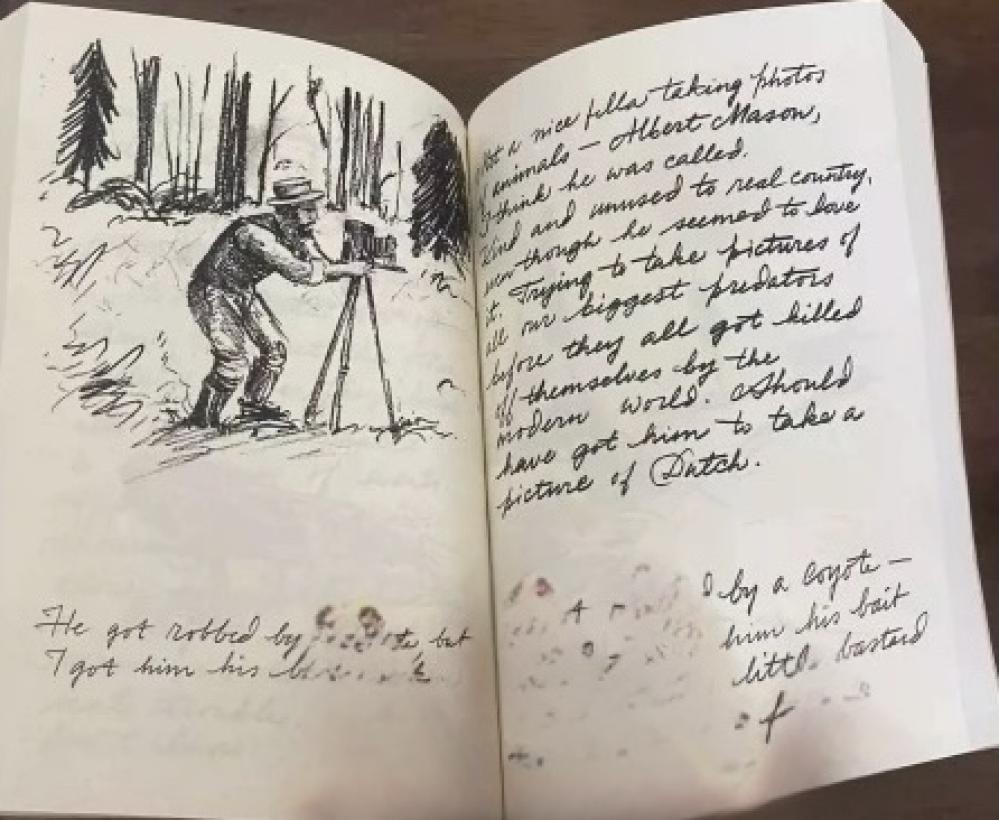 He got robbed by
but
I got him his
a nice fella taking photos
animals — Albert Mason,
I think he was called.
Kind and unused to real country,
even though he seemed to love
it. Trying to take pictures of
all our biggest predators
before they all got killed
off themselves by the
modern world. Should
have got him to take a
picture of Dutch.
by a coyote —
him his bait
little bastard